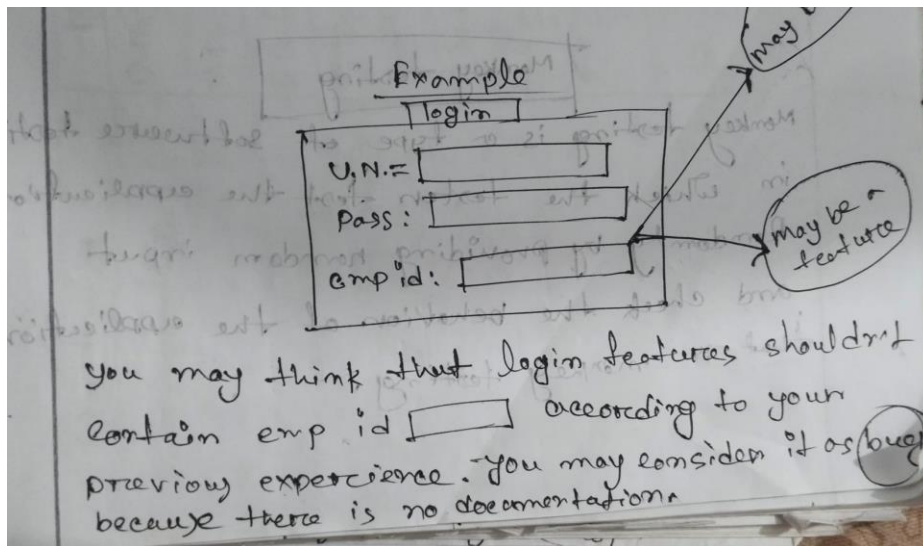 may
Example
login
U.N.=
Pass:
emp id:
may be a
feature
you may think that login features shouldn't
contain emp id according to your
previous experience. you may consider it as bug
because there is no documentation.